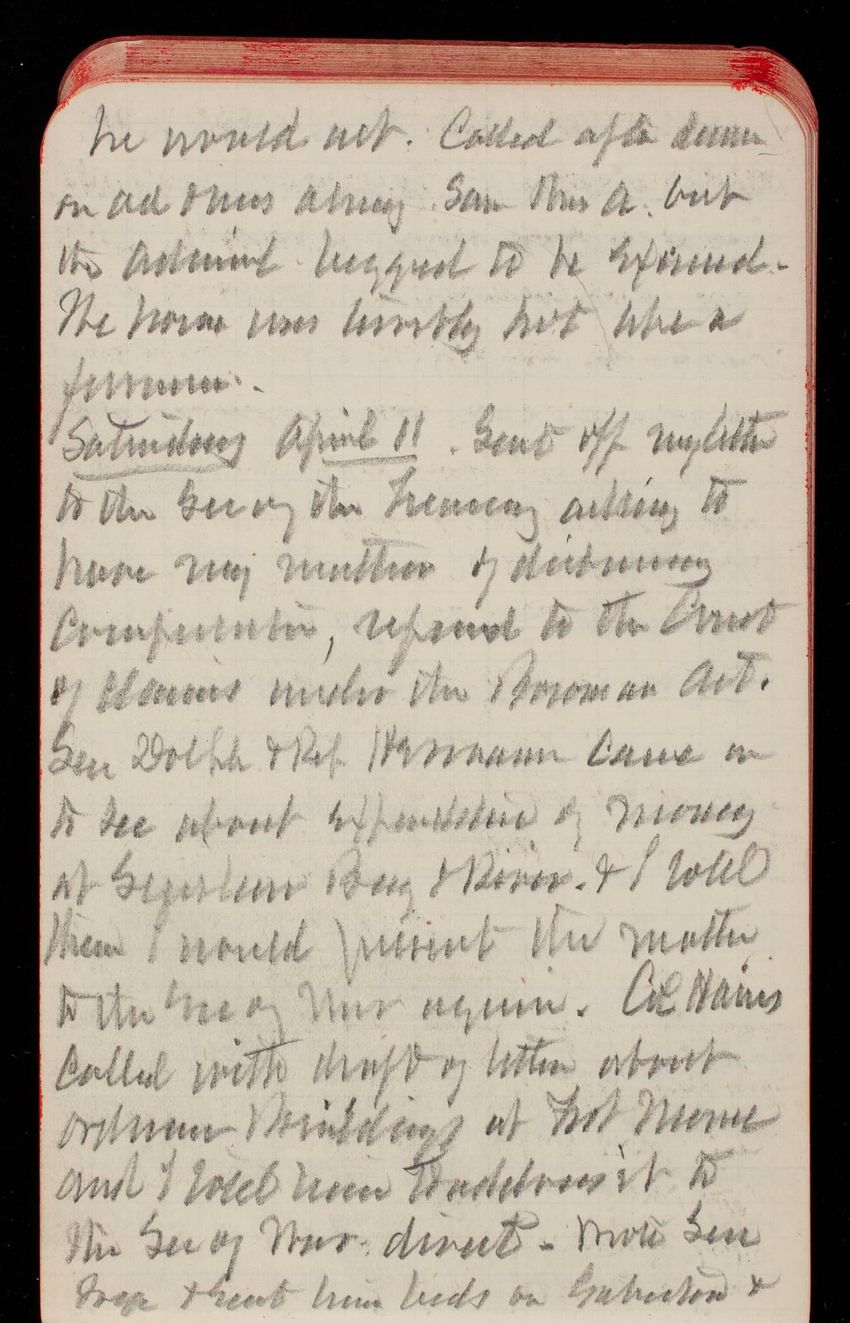 he would act. Called after dinner
on Ad Ames Saw Mrs A. but
the Admiral begged to be Excused.
The house was terribly hot like a
furnace.
Saturday April 11. Sent off my letter
to the Sec of the Treasury asking to
have my matter of
Compensation, referred to the Court
of Claims under the Bowman Act.
Sen Dolph & Rep Hermann came in
to see about Expenditure of money
at Bay & River. & I told
them I would present the matter
to the Sec of War again. Col Hains
Called with draft of letter about
Ordnance Buildings at Fort Monroe
and I told him to address it to
the Sec of War direct. Wrote Gen
& sent him bids on Galveston &